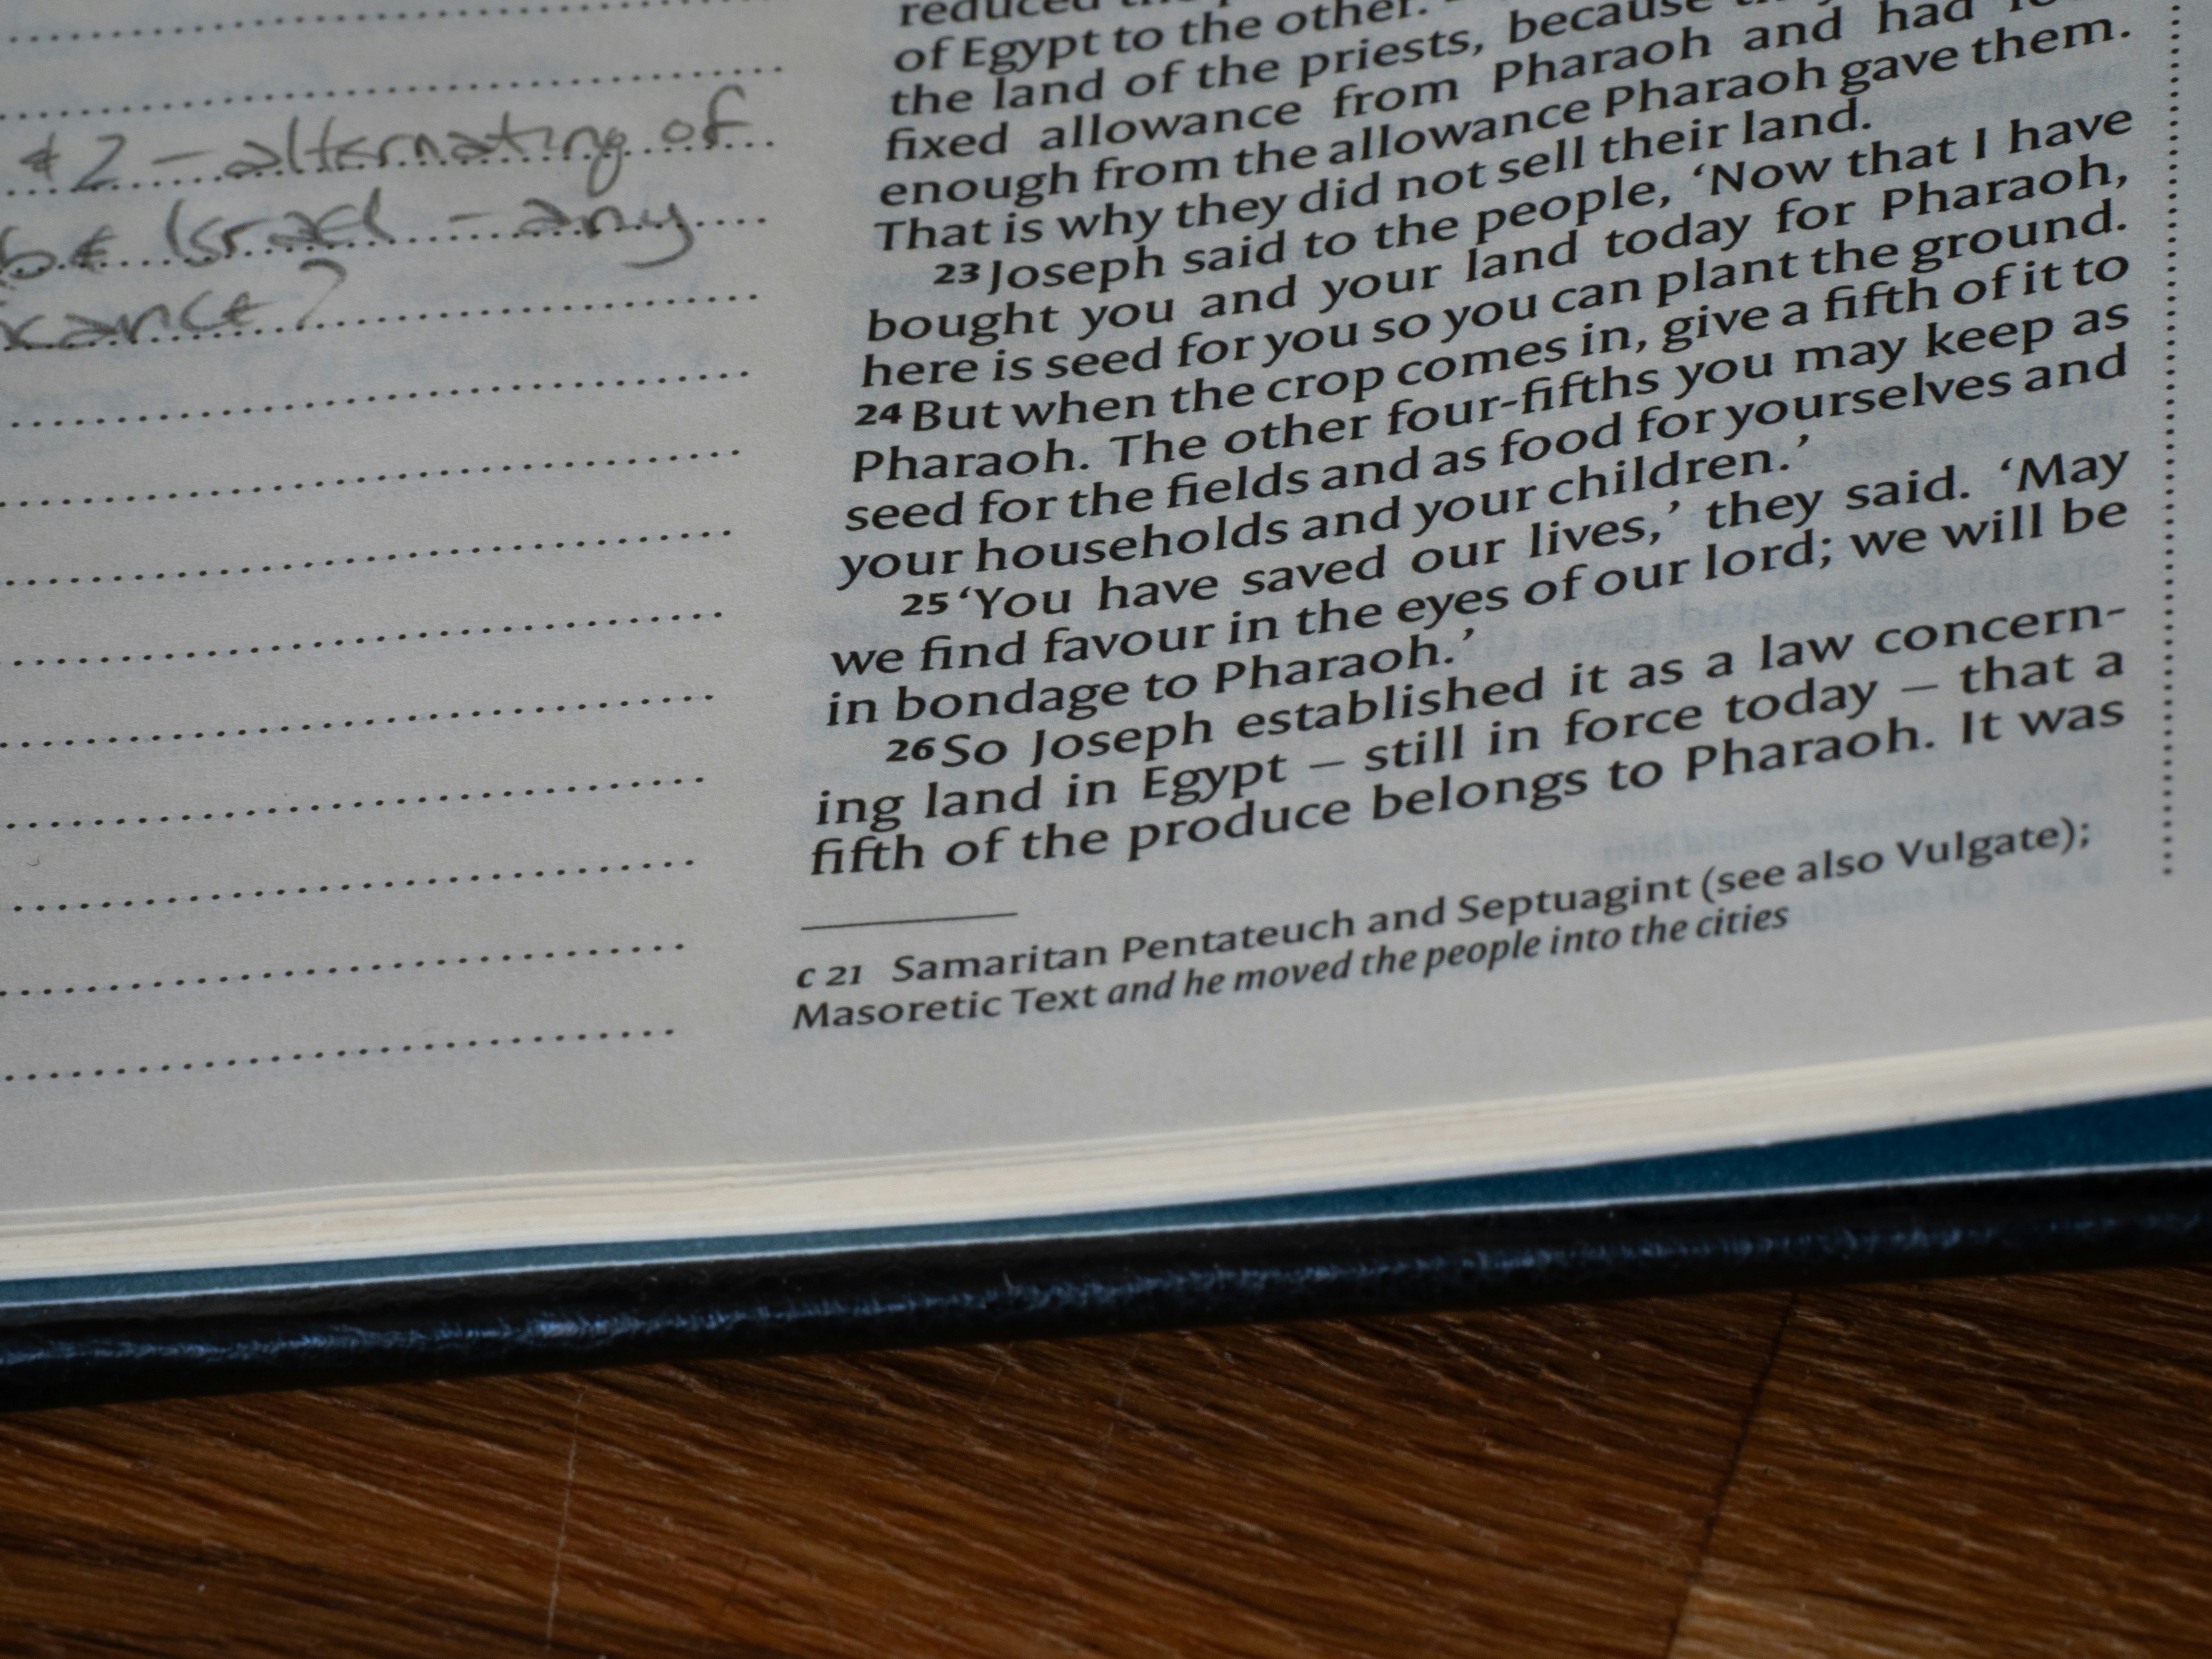 & 2 - alternating of
Israel - any
?
reduced
of Egypt to the other.
the land of the priests, because
fixed allowance from Pharaoh and had
enough from the allowance Pharaoh gave them.
That is why they did not sell their land.
23 Joseph said to the people, ‘Now that I have
bought you and your land today for Pharaoh,
here is seed for you so you can plant the ground.
24 But when the crop comes in, give a fifth of it to
Pharaoh. The other four-fifths you may keep as
seed for the fields and as food for yourselves and
your households and your children.’
25 ‘You have saved our lives,’ they said. ‘May
we find favour in the eyes of our lord; we will be
in bondage to Pharaoh.’
26 So Joseph established it as a law concern-
ing land in Egypt – still in force today – that a
fifth of the produce belongs to Pharaoh. It was
c 21 Samaritan Pentateuch and Septuagint (see also Vulgate);
Masoretic Text and he moved the people into the cities